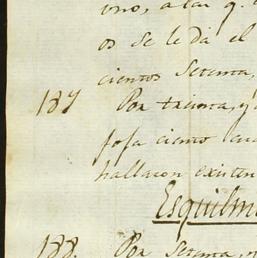 uno, a las q.
os se le da el
cientos Setenta,
187 Por treinta, y
fosa ciento cua
hallaron existen
Esquilm
188. Por Setenta,